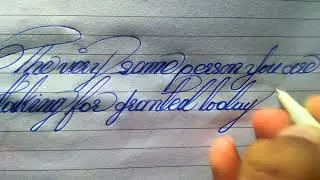 The very same person you are
taking for granted today